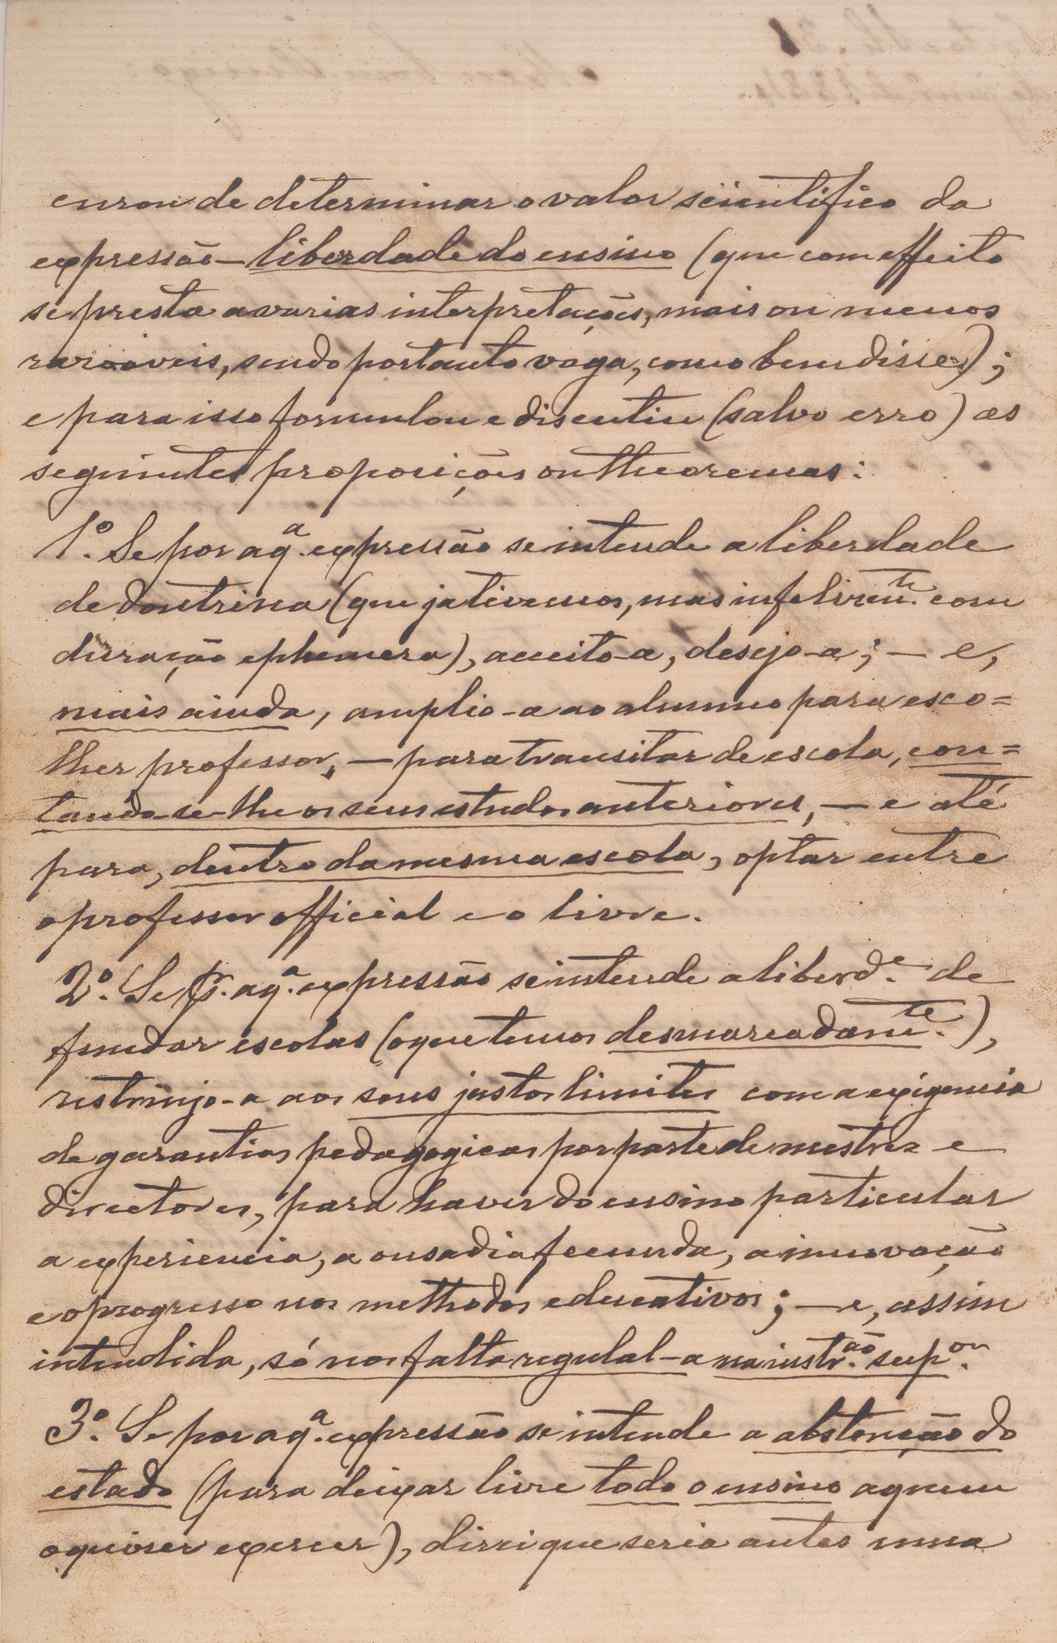 curou de determinar o valor scientifico da
expressão — liberdade do ensino (que com effeito
se presta a varias interpretações, mais ou menos
razoaveis, sendo portanto vaga, como bem disse);
e para isso formulou e discutiu (salvo erro) as
seguintes proposições ou theoremas:
1.º Se por aq.ª expressão se intende a liberdade
de doutrina (que ja tivemos, mas infelizm.te com
duração ephemera), acceito-a, desejo-a; — e,
mais ainda, amplio-a ao alumno para esco=
lher professor, — para transitar de escola, con=
tando-se-lhe os seus estudos anteriores, — e até
para, dentro da mesma escola, optar entre
o professor official e o livre.
2.º Se p.r aq.ª expressão se intende a liberd.e de
fundar escolas (o que temos desmarcadam.te),
restrinjo-a aos seus justos limites com a exigencia
de garantias pedagogicas por parte de mestres e
directores, para haver do ensino particular
a experiencia, a ousadia fecunda, a innovação
e o progresso nos methodos educativos; — e, assim
intendida, só nos falta regulal-a na instr.ão sup.or
3.º Se por aq.ª expressão se intende a abstenção do
estado (para deixar livre todo o ensino a quem
o quizer exercer), dirsei que seria antes uma